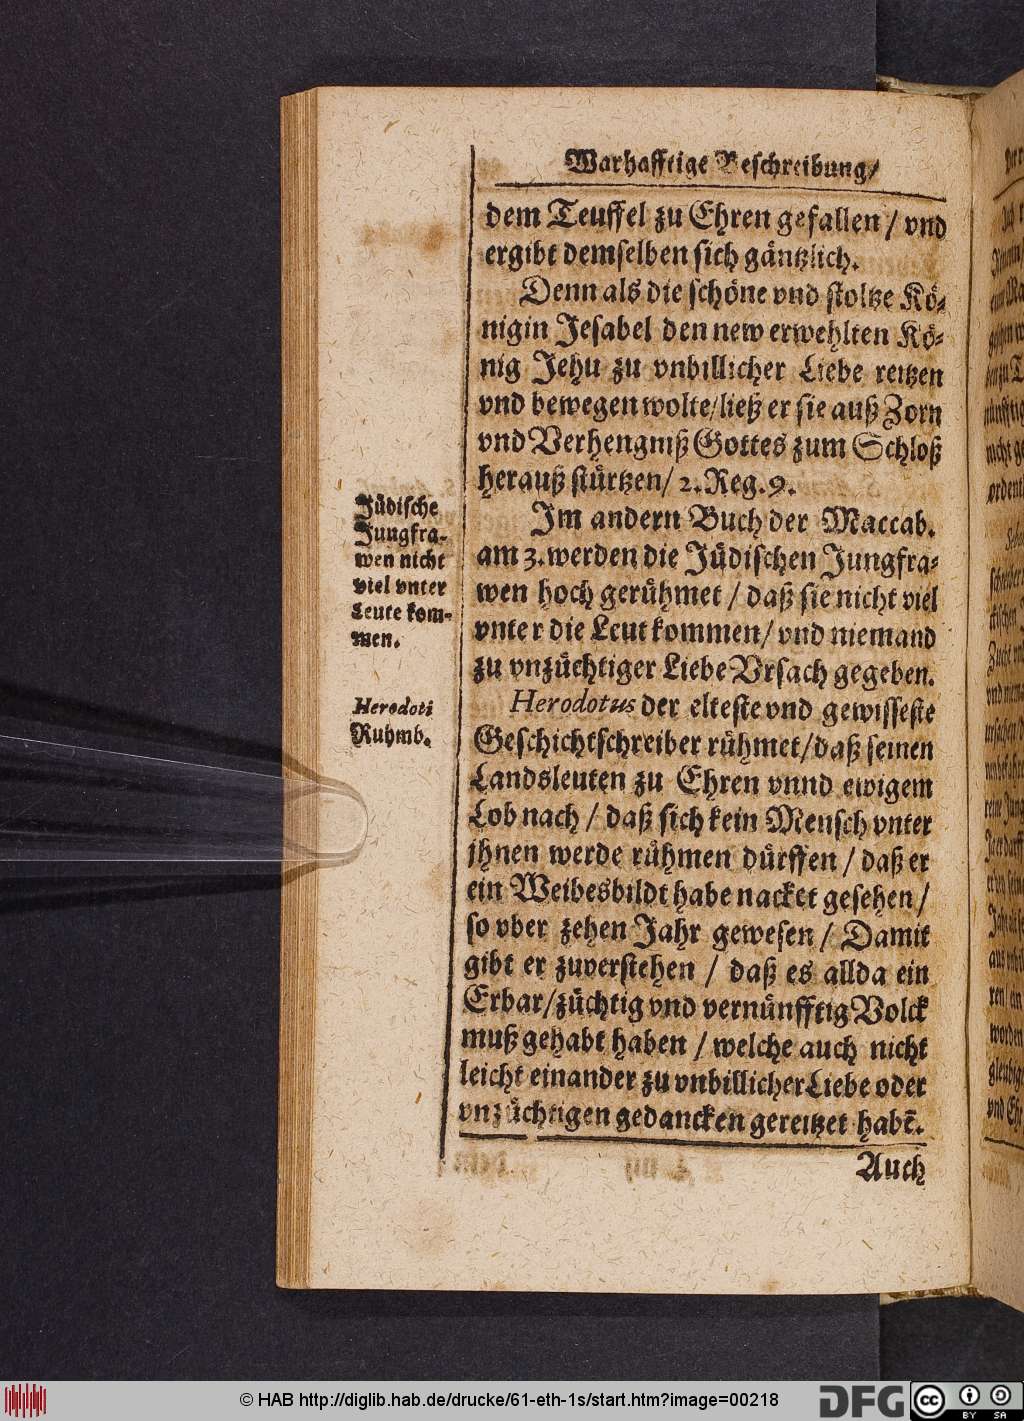 Warhafftige Beschreibung/
dem Teuffel zu Ehren gefallen / vnd
ergibt demselben sich gäntzlich.
Denn als die schöne vnd stoltze Kö-
nigin Jesabel den new erwehlten Kö-
nig Jehu zu vnbillicher Liebe reitzen
vnd bewegen wolte/ließ er sie auß Zorn
vnd Verhengniß Gottes zum Schloß
herauß stürtzen/ 2. Reg. 9.
Im andern Buch der Maccab.
am 3. werden die Jüdischen Jungfra-
wen hoch gerühmet / daß sie nicht viel
vnter die Leut kommen/ vnd niemand
zu vnzüchtiger Liebe Vrsach gegeben.
Herodotus der elteste vnd gewisseste
Geschichtschreiber rühmet/daß seinen
Landsleuten zu Ehren vnnd ewigem
Lob nach / daß sich kein Mensch vnter
jhnen werde rühmen dürffen / daß er
ein Weibesbildt habe nacket gesehen /
so vber zehen Jahr gewesen / Damit
gibt er zuverstehen / daß es allda ein
Erbar/züchtig vnd vernünfftig Volck
muß gehabt haben / welche auch nicht
leicht einander zu vnbillicher Liebe oder
vnzüchtigen gedancken gereitzet habẽ.
Auch
Jüdische
Jungfra-
wen nicht
viel vnter
Leute kom-
men.
Herodoti
Ruhmb.
© HAB http://diglib.hab.de/drucke/61-eth-1s/start.htm?image=00218
DFG
cc
BY SA